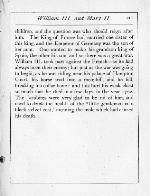 William III. and Mary II.
children, and the question was who should reign after
him. The King of France had married one sister of
this king, and the Emperor of Germany was the son of
her aunt. One wanted to make his grandson king of
Spain, the other his son and so there was a great war.
William III. took part against the French—as he had
always been their enemy; but just as the war was going
to begin, as he was riding near his palace of Hampton
Court, his horse trod into a mole-hill, and he fell,
breaking his collar bone; and this hurt his weak chest
so much that he died in a few days, in the year 1702.
The Jacobites were very glad to be rid of him, and
used to drink the health of the "little gentleman in a
black velvet coat," meaning the mole which had caused
his death.